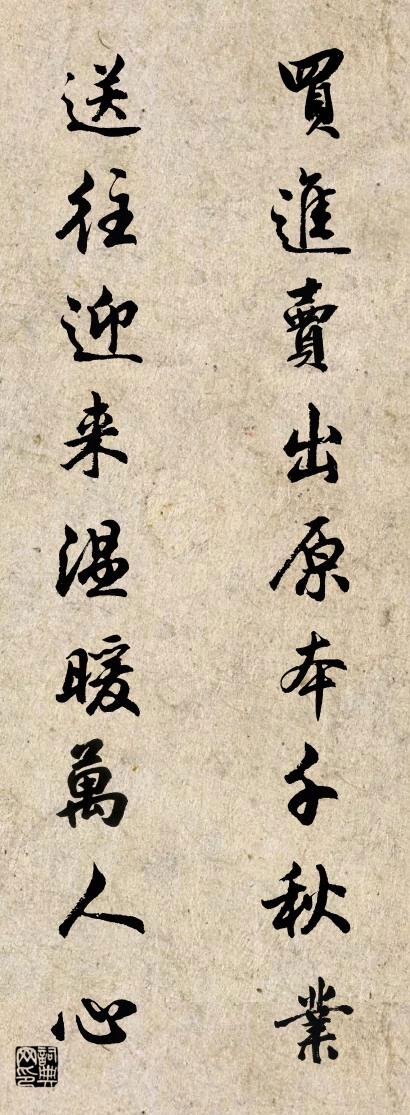 買進賣出原本千秋業
送往迎来温暖萬人心
詞典网印